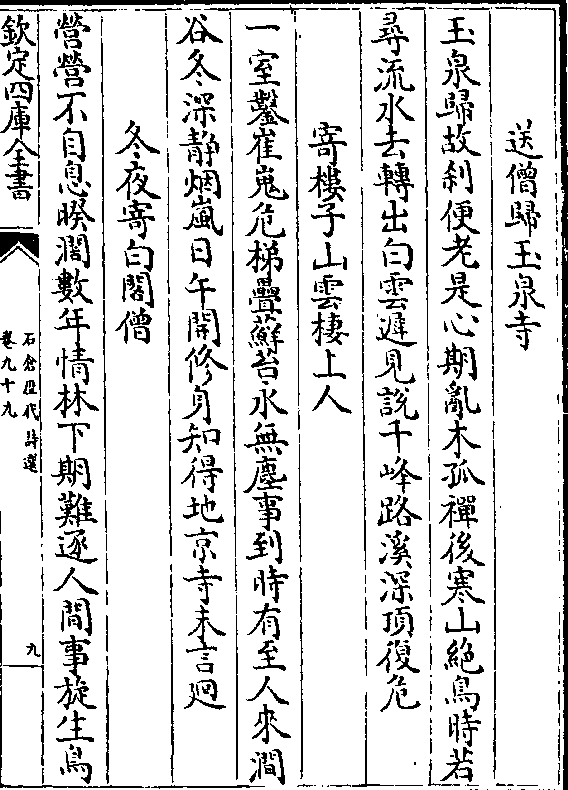 送僧歸玉泉寺
玉泉歸故刹便老是心期亂木孤禪後寒山絶鳥時若
尋流水去轉出白雲遲見說千峰路溪深頂復危
寄樓子山雲棲上人
一室鑿崔嵬危梯疊蘚苔永無塵事到時有至人來澗
谷冬深靜烟嵐日午開修身知得地京寺未言廻
冬夜寄白閣僧
營營不自息暌濶數年情林下期難逐人間事旋生鳥
欽定四庫全書
石倉歷代詩選
卷九十九
九